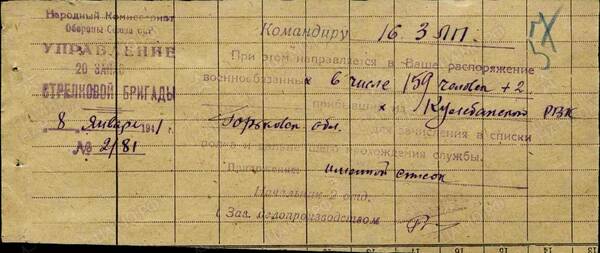 Народный Комиссариат
Обороны Союза ССР
УПРАВЛЕНИЕ
20 ЗАПАС
СТРЕЛКОВОЙ БРИГАДЫ
8 января 1941 г.
№ 2/81
Командиру 16. ЗЛП.
При этом направляется в Ваше распоряжение
военнообязанных в числе 159 человек + 2
прибывших из Кулебакского РВК
Горьковск обл. для зачисления в списки
полка и дальнейшего прохождения службы.
Приложение: именной список
Начальник 2 отд.
(Зав. делопроизводством